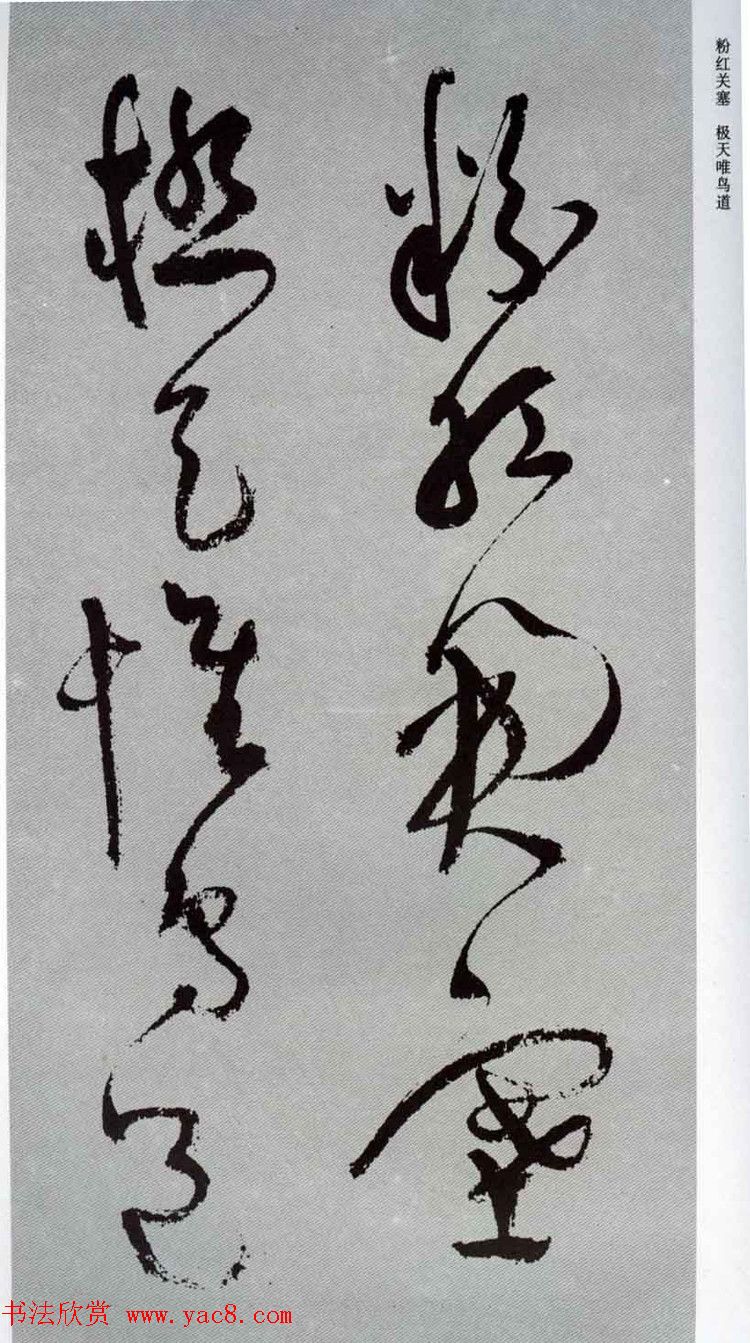 粉红关塞 极天唯鸟道
粉紅關塞
極天惟鳥道
书法欣赏 www.yac8.com